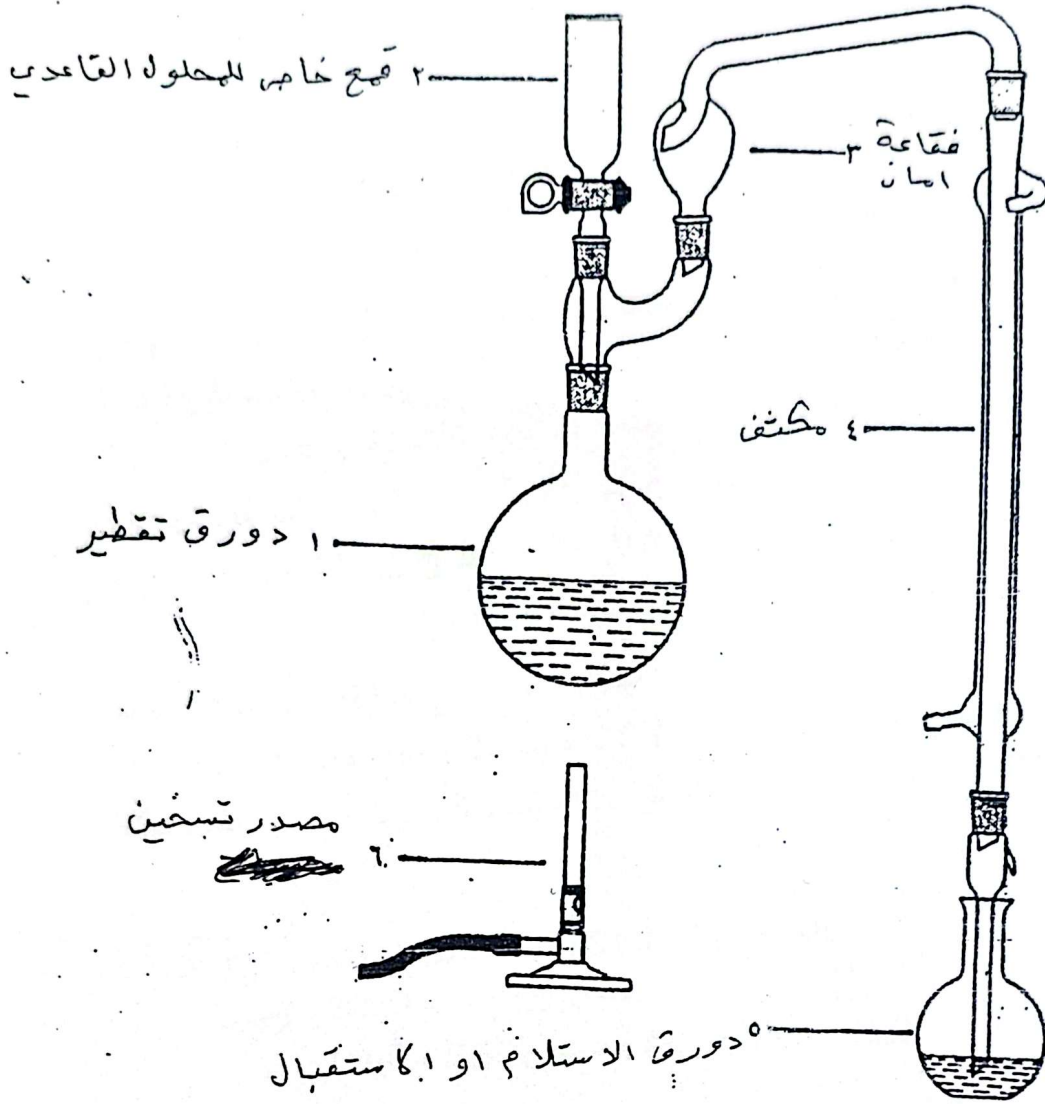 ٢ قمع خاص للمحلول القاعدي
٣ فقاعة
امان
٤ مكثف
١ دورق تقطير
مصدر تسخين
٦
٥ دورق الاستلام او الاستقبال